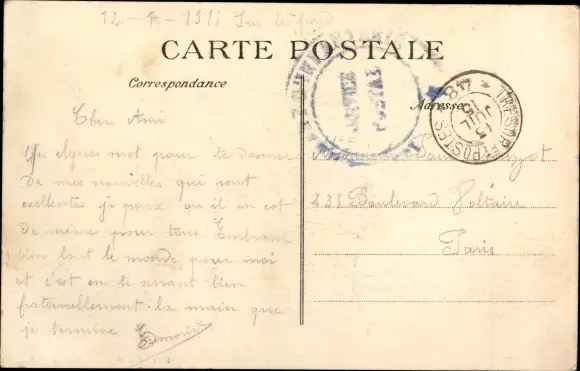 12 - 7 - 1915 Sur le front
CARTE POSTALE
Correspondance
Adresse
VAGUEMESTRE
POSTAL
TRESOR ET POSTES * 48 *
15
JUIL
15
Cher Ami
Un mot pour te donner
de mes nouvelles qui sont
exellentes je pense qu'il en est
de même pour tous. Embrasse
bien tout le monde pour moi
et c'est en te serrant bien
fraternellement la main que
je termine
Edmond
Monsieur
235 Boulevard Voltaire
Paris